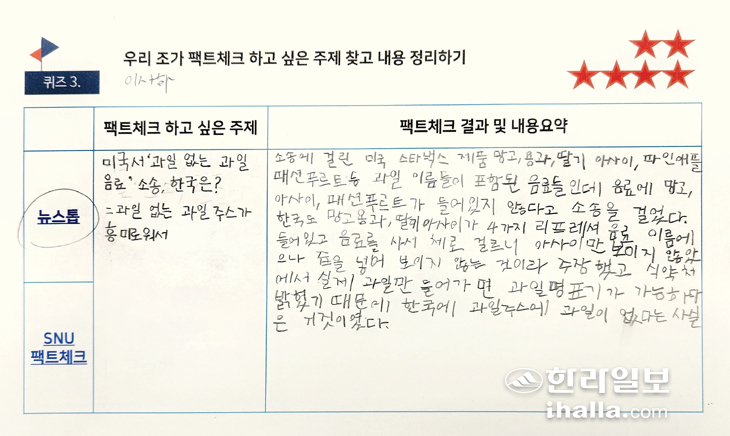 우리 조가 팩트체크 하고 싶은 주제 찾고 내용 정리하기
퀴즈 3.
팩트체크 하고 싶은 주제
팩트체크 결과 및 내용요약
뉴스톱
미국서 '과일 없는 과일
음료' 소송, 한국은?
=과일 없는 과일주스가
흥미로워서
소송에 걸린 미국 스타벅스 제품 망고, 용과, 딸기 아사이, 파인애플
패션푸르트 등 과일 이름들이 포함된 음료들인데 음료에 망고,
아사이, 패션푸르트가 들어있지 않다고 소송을 걸었다.
한국도 망고용과, 딸기아사이가 4가지 리프레셔 음료 이름에
들어있고 음료를 사서 체로 걸르니 아사이만 보이지 않았
으나 즙을 넣어 보이지 않는 것이라 주장했고 식약처
에서 실제 과일만 들어가면 과일명표기가 가능하다
밝혔기 때문에 한국에 과일주스에 과일이 없다는 사실
은 거짓이였다.
SNU
팩트체크
한라일보
ihalla.com